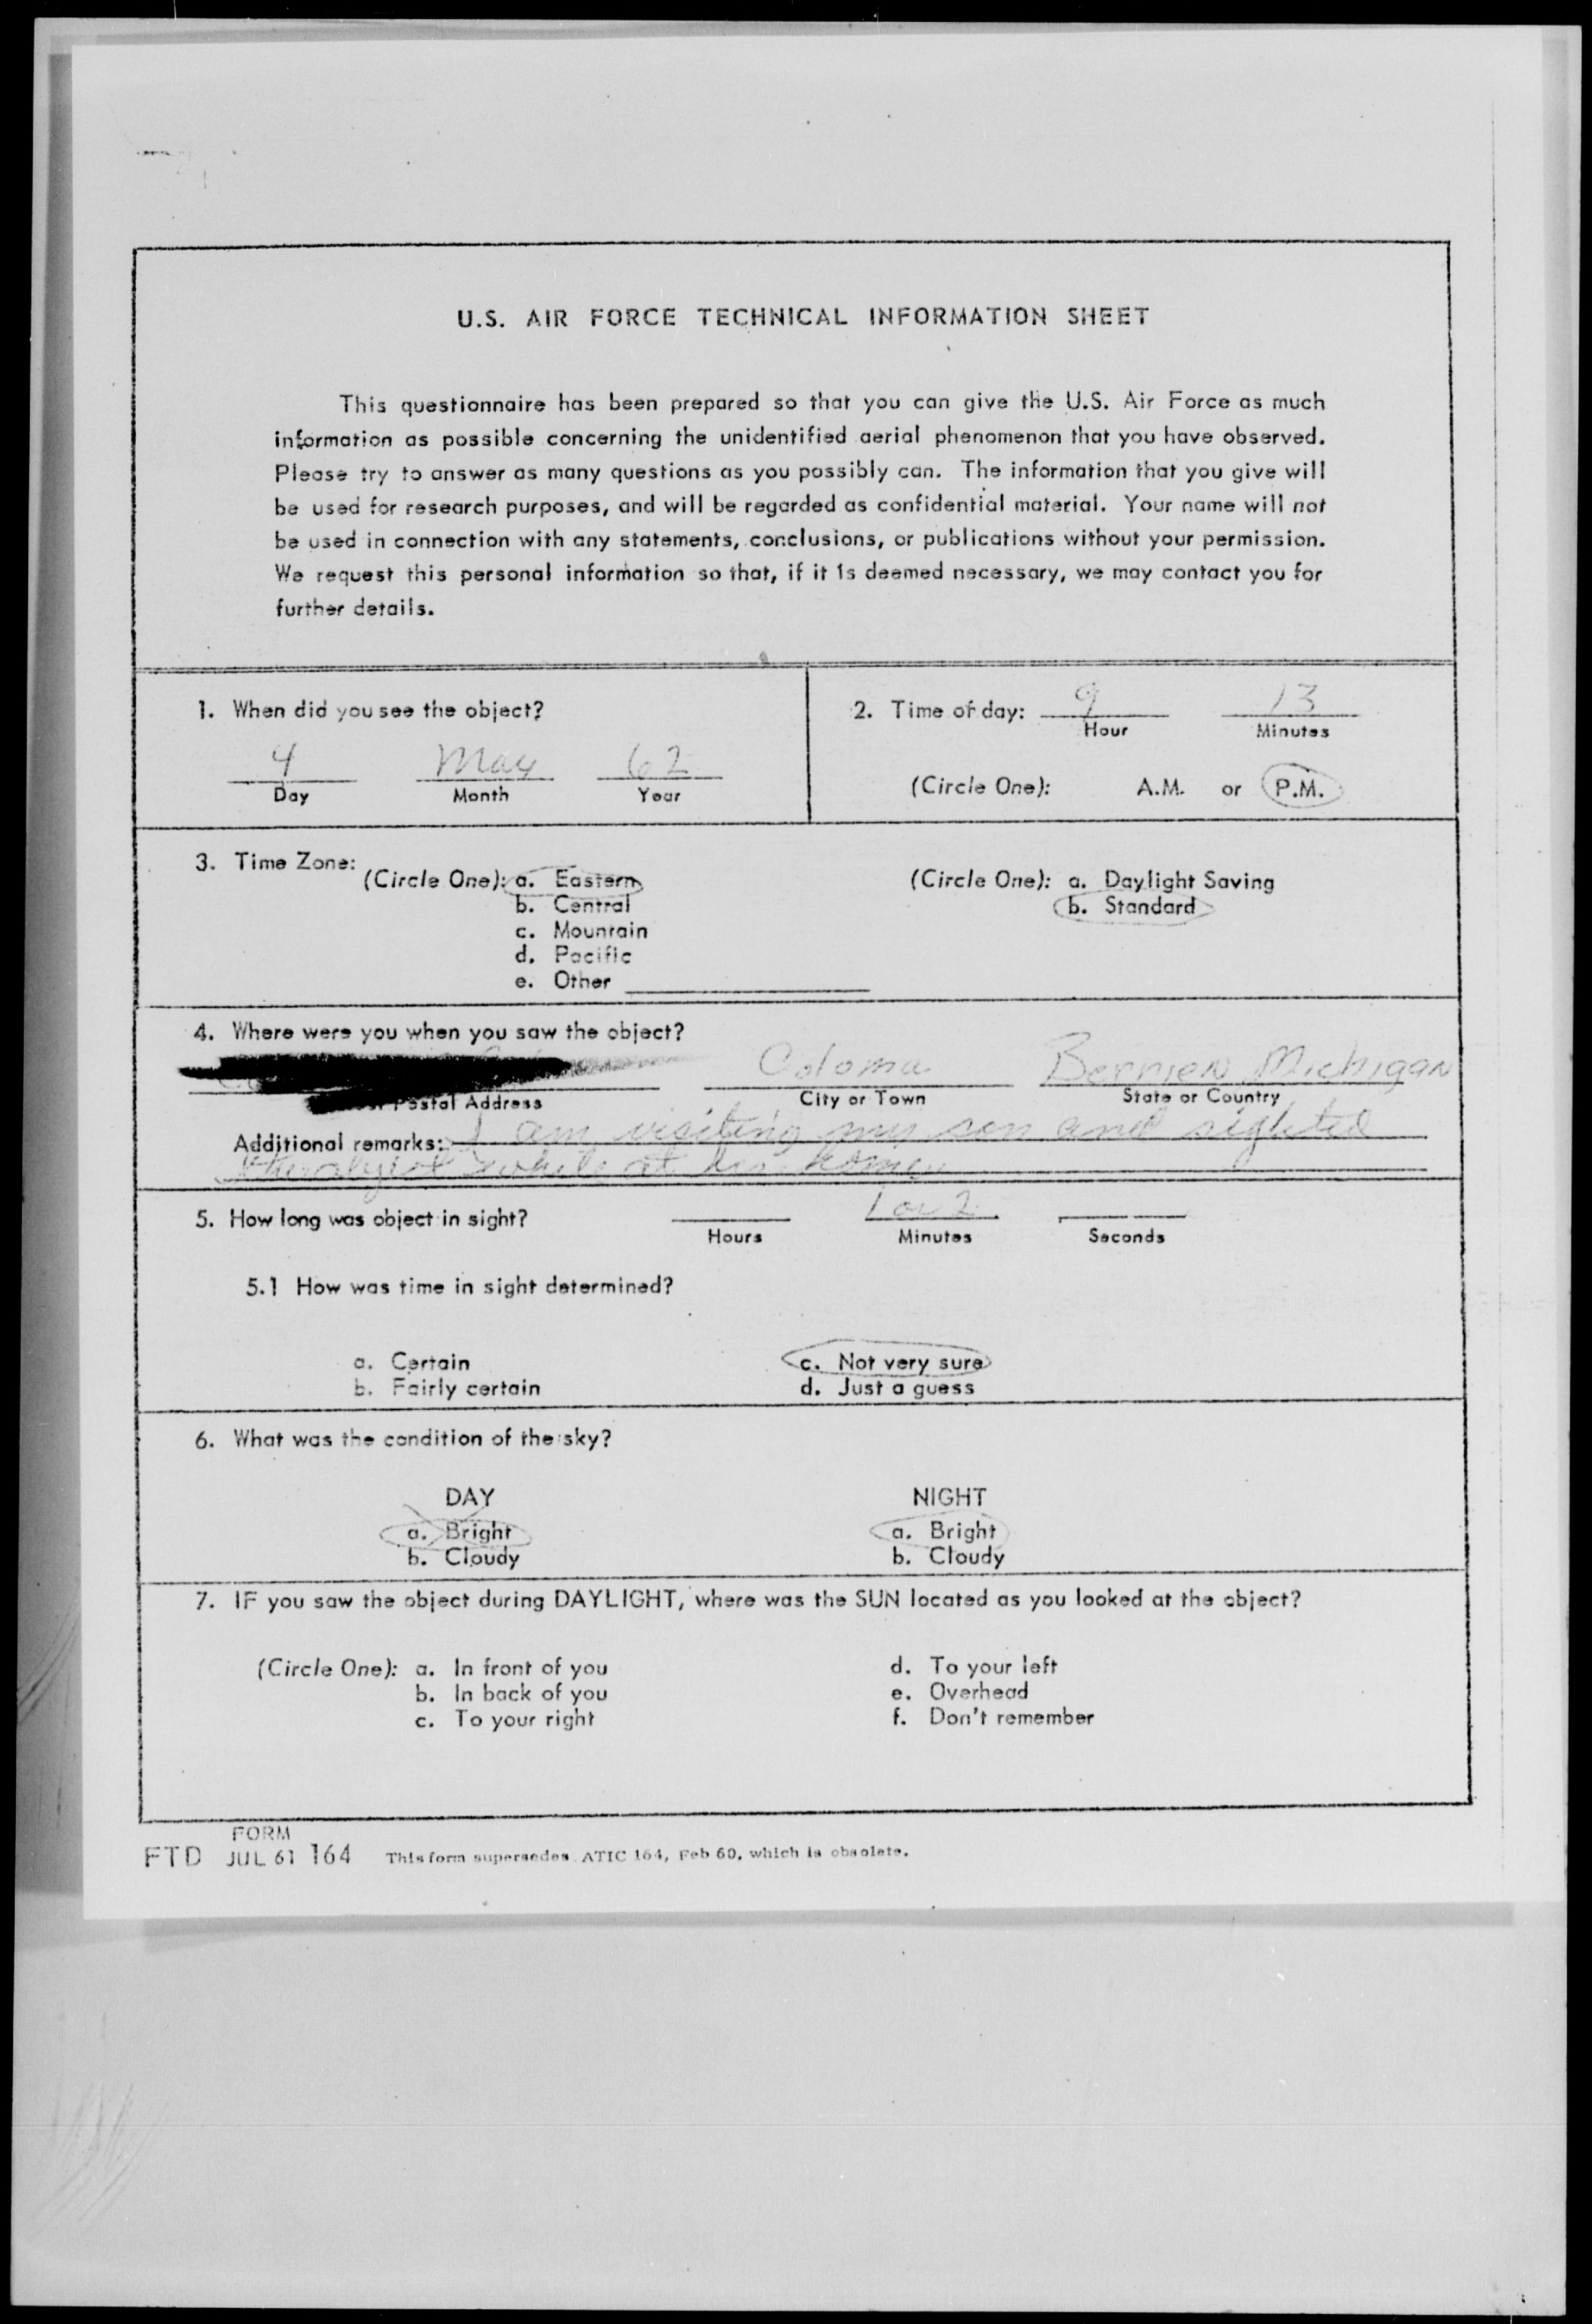 U.S. AIR FORCE TECHNICAL INFORMATION SHEET
This questionnaire has been prepared so that you can give the U.S. Air Force as much
information as possible concerning the unidentified aerial phenomenon that you have observed.
Please try to answer as many questions as you possibly can. The information that you give will
be used for research purposes, and will be regarded as confidential material. Your name will not
be used in connection with any statements, conclusions, or publications without your permission.
We request this personal information so that, if it is deemed necessary, we may contact you for
further details.
1. When did you see the object?
4 May 62
Day Month Year
2. Time of day: 9 13
Hour Minutes
(Circle One): A.M. or P.M.
3. Time Zone:
(Circle One): a. Eastern
b. Central
c. Mountain
d. Pacific
e. Other
(Circle One): a. Daylight Saving
b. Standard
4. Where were you when you saw the object?
Coloma Berrien Michigan
Postal Address City or Town State or Country
Additional remarks: I am visiting my son and sighted
the object while at his home
5. How long was object in sight? 1 or 2
Hours Minutes Seconds
5.1 How was time in sight determined?
a. Certain c. Not very sure
b. Fairly certain d. Just a guess
6. What was the condition of the sky?
DAY NIGHT
a. Bright a. Bright
b. Cloudy b. Cloudy
7. IF you saw the object during DAYLIGHT, where was the SUN located as you looked at the object?
(Circle One): a. In front of you d. To your left
b. In back of you e. Overhead
c. To your right f. Don't remember
FORM
FTD JUL 61 164 This form supersedes ATIC 164, Feb 60, which is obsolete.